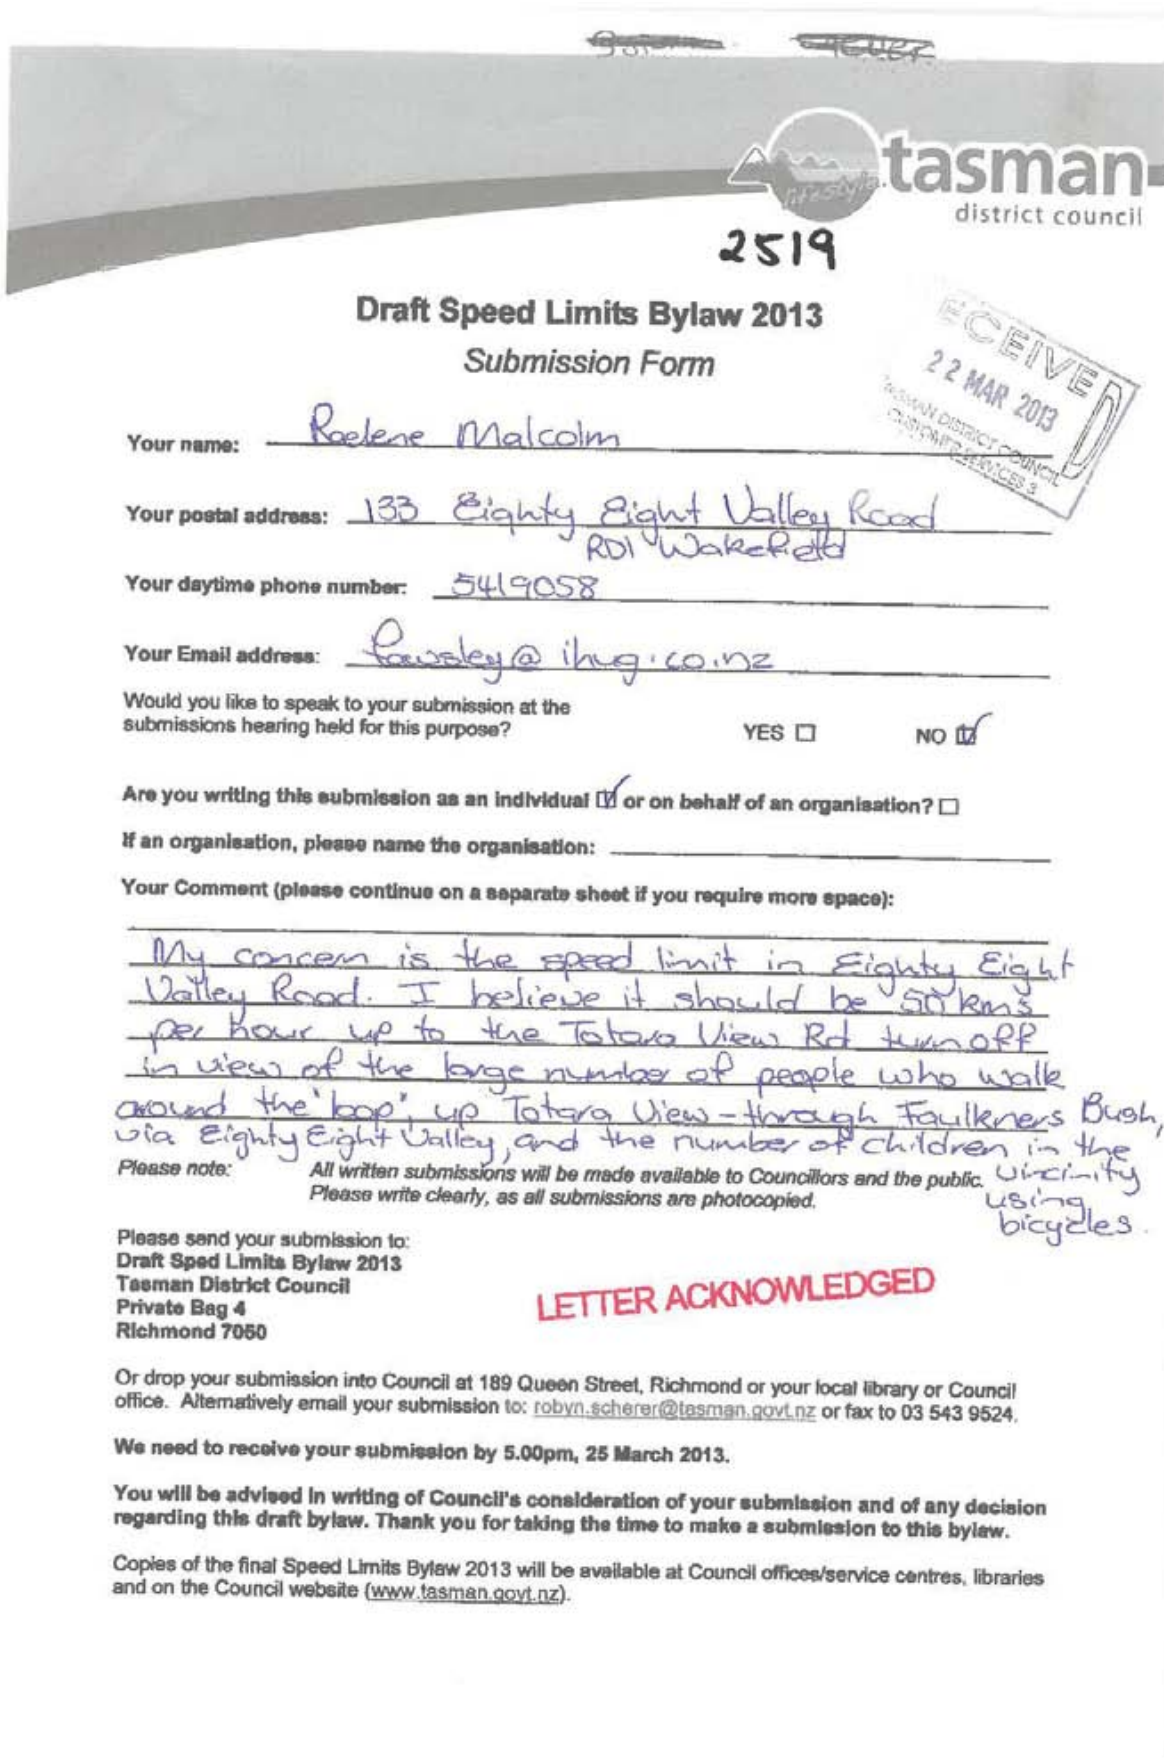 lifestyle
tasman
district council
2519
Draft Speed Limits Bylaw 2013
Submission Form
ECEIVED
22 MAR 2013
TASMAN DISTRICT COUNCIL
CUSTOMER SERVICES 3
Your name: Roelene Malcolm
Your postal address: 133 Eighty Eight Valley Road
RD1 Wakefield
Your daytime phone number: 5419058
Your Email address: @ ihug.co.nz
Would you like to speak to your submission at the
submissions hearing held for this purpose? YES ☐ NO ☑
Are you writing this submission as an individual ☑ or on behalf of an organisation? ☐
If an organisation, please name the organisation:
Your Comment (please continue on a separate sheet if you require more space):
My concern is the speed limit in Eighty Eight
Valley Road. I believe it should be 50 kms
per hour up to the Totara View Rd turnoff
in view of the large number of people who walk
around the 'loop', up Totara View - through Faulkners Bush,
via Eighty Eight Valley, and the number of children in the
vircinity
using
bicycles.
Please note: All written submissions will be made available to Councillors and the public.
Please write clearly, as all submissions are photocopied.
Please send your submission to:
Draft Sped Limits Bylaw 2013
Tasman District Council
Private Bag 4
Richmond 7050
LETTER ACKNOWLEDGED
Or drop your submission into Council at 189 Queen Street, Richmond or your local library or Council
office. Alternatively email your submission to: robyn.scherer@tasman.govt.nz or fax to 03 543 9524.
We need to receive your submission by 5.00pm, 25 March 2013.
You will be advised in writing of Council's consideration of your submission and of any decision
regarding this draft bylaw. Thank you for taking the time to make a submission to this bylaw.
Copies of the final Speed Limits Bylaw 2013 will be available at Council offices/service centres, libraries
and on the Council website (www.tasman.govt.nz).